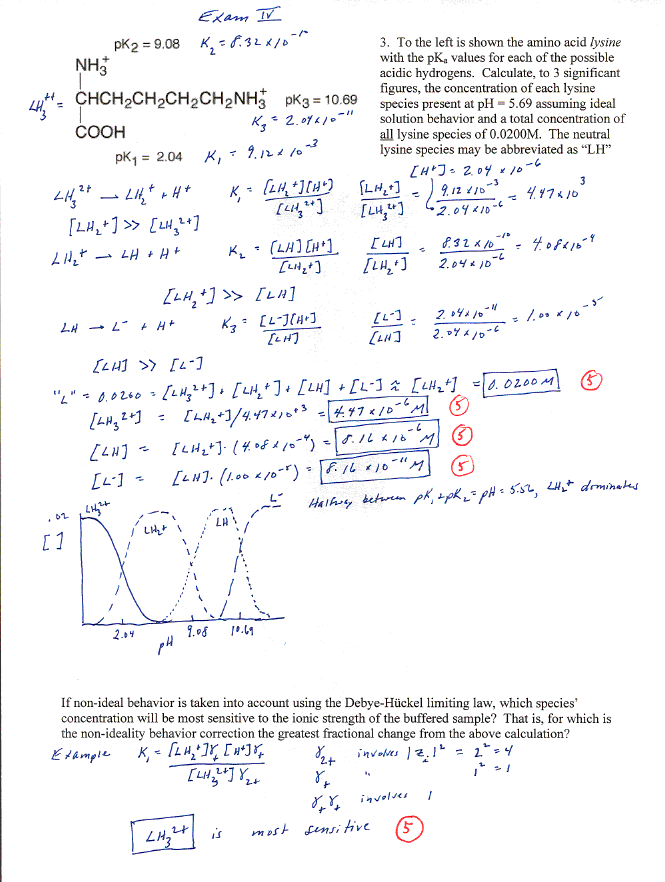 Exam IV
pK2 = 9.08 K₂ = 8.32 x 10⁻¹⁰
NH₃⁺
LH₃⁺⁺ = CHCH₂CH₂CH₂CH₂NH₃⁺ pK3 = 10.69
K₃ = 2.04 x 10⁻¹¹
COOH
pK₁ = 2.04 K₁ = 9.12 x 10⁻³
3. To the left is shown the amino acid lysine
with the pKₐ values for each of the possible
acidic hydrogens. Calculate, to 3 significant
figures, the concentration of each lysine
species present at pH = 5.69 assuming ideal
solution behavior and a total concentration of
all lysine species of 0.0200M. The neutral
lysine species may be abbreviated as “LH”
[H⁺] = 2.04 x 10⁻⁶
LH₃²⁺ → LH₂⁺ + H⁺ K₁ = [LH₂⁺][H⁺] / [LH₃²⁺] [LH₂⁺] / [LH₃²⁺] = 9.12 x 10⁻³ / 2.04 x 10⁻⁶ = 4.47 x 10³
[LH₂⁺] >> [LH₃²⁺]
LH₂⁺ → LH + H⁺ K₂ = [LH][H⁺] / [LH₂⁺] [LH] / [LH₂⁺] = 8.32 x 10⁻¹⁰ / 2.04 x 10⁻⁶ = 4.08 x 10⁻⁴
[LH₂⁺] >> [LH]
LH → L⁻ + H⁺ K₃ = [L⁻][H⁺] / [LH] [L⁻] / [LH] = 2.04 x 10⁻¹¹ / 2.04 x 10⁻⁶ = 1.00 x 10⁻⁵
[LH] >> [L⁻]
"L" = 0.0200 = [LH₃²⁺] + [LH₂⁺] + [LH] + [L⁻] ≈ [LH₂⁺] = 0.0200 M 5
[LH₃²⁺] = [LH₂⁺]/4.47 x 10⁺³ = 4.47 x 10⁻⁶ M 5
[LH] = [LH₂⁺]·(4.08 x 10⁻⁴) = 8.16 x 10⁻⁶ M 5
[L⁻] = [LH]·(1.00 x 10⁻⁵) = 8.16 x 10⁻¹¹ M 5
Halfway between pK₁ + pK₂ = pH = 5.56, LH₂⁺ dominates
.02 LH₃²⁺ LH₂⁺ LH L⁻
[ ]
2.04 9.08 10.69
pH
If non-ideal behavior is taken into account using the Debye-Hückel limiting law, which species’
concentration will be most sensitive to the ionic strength of the buffered sample? That is, for which is
the non-ideality behavior correction the greatest fractional change from the above calculation?
Example K₁ = [LH₂⁺]γ₊ [H⁺]γ₊ / [LH₃²⁺] γ₂₊ γ₂₊ involves |zᵢ|² = 2² = 4
γ₊ " 1² = 1
γ₊γ₊ involves 1
LH₃²⁺ is most sensitive 5